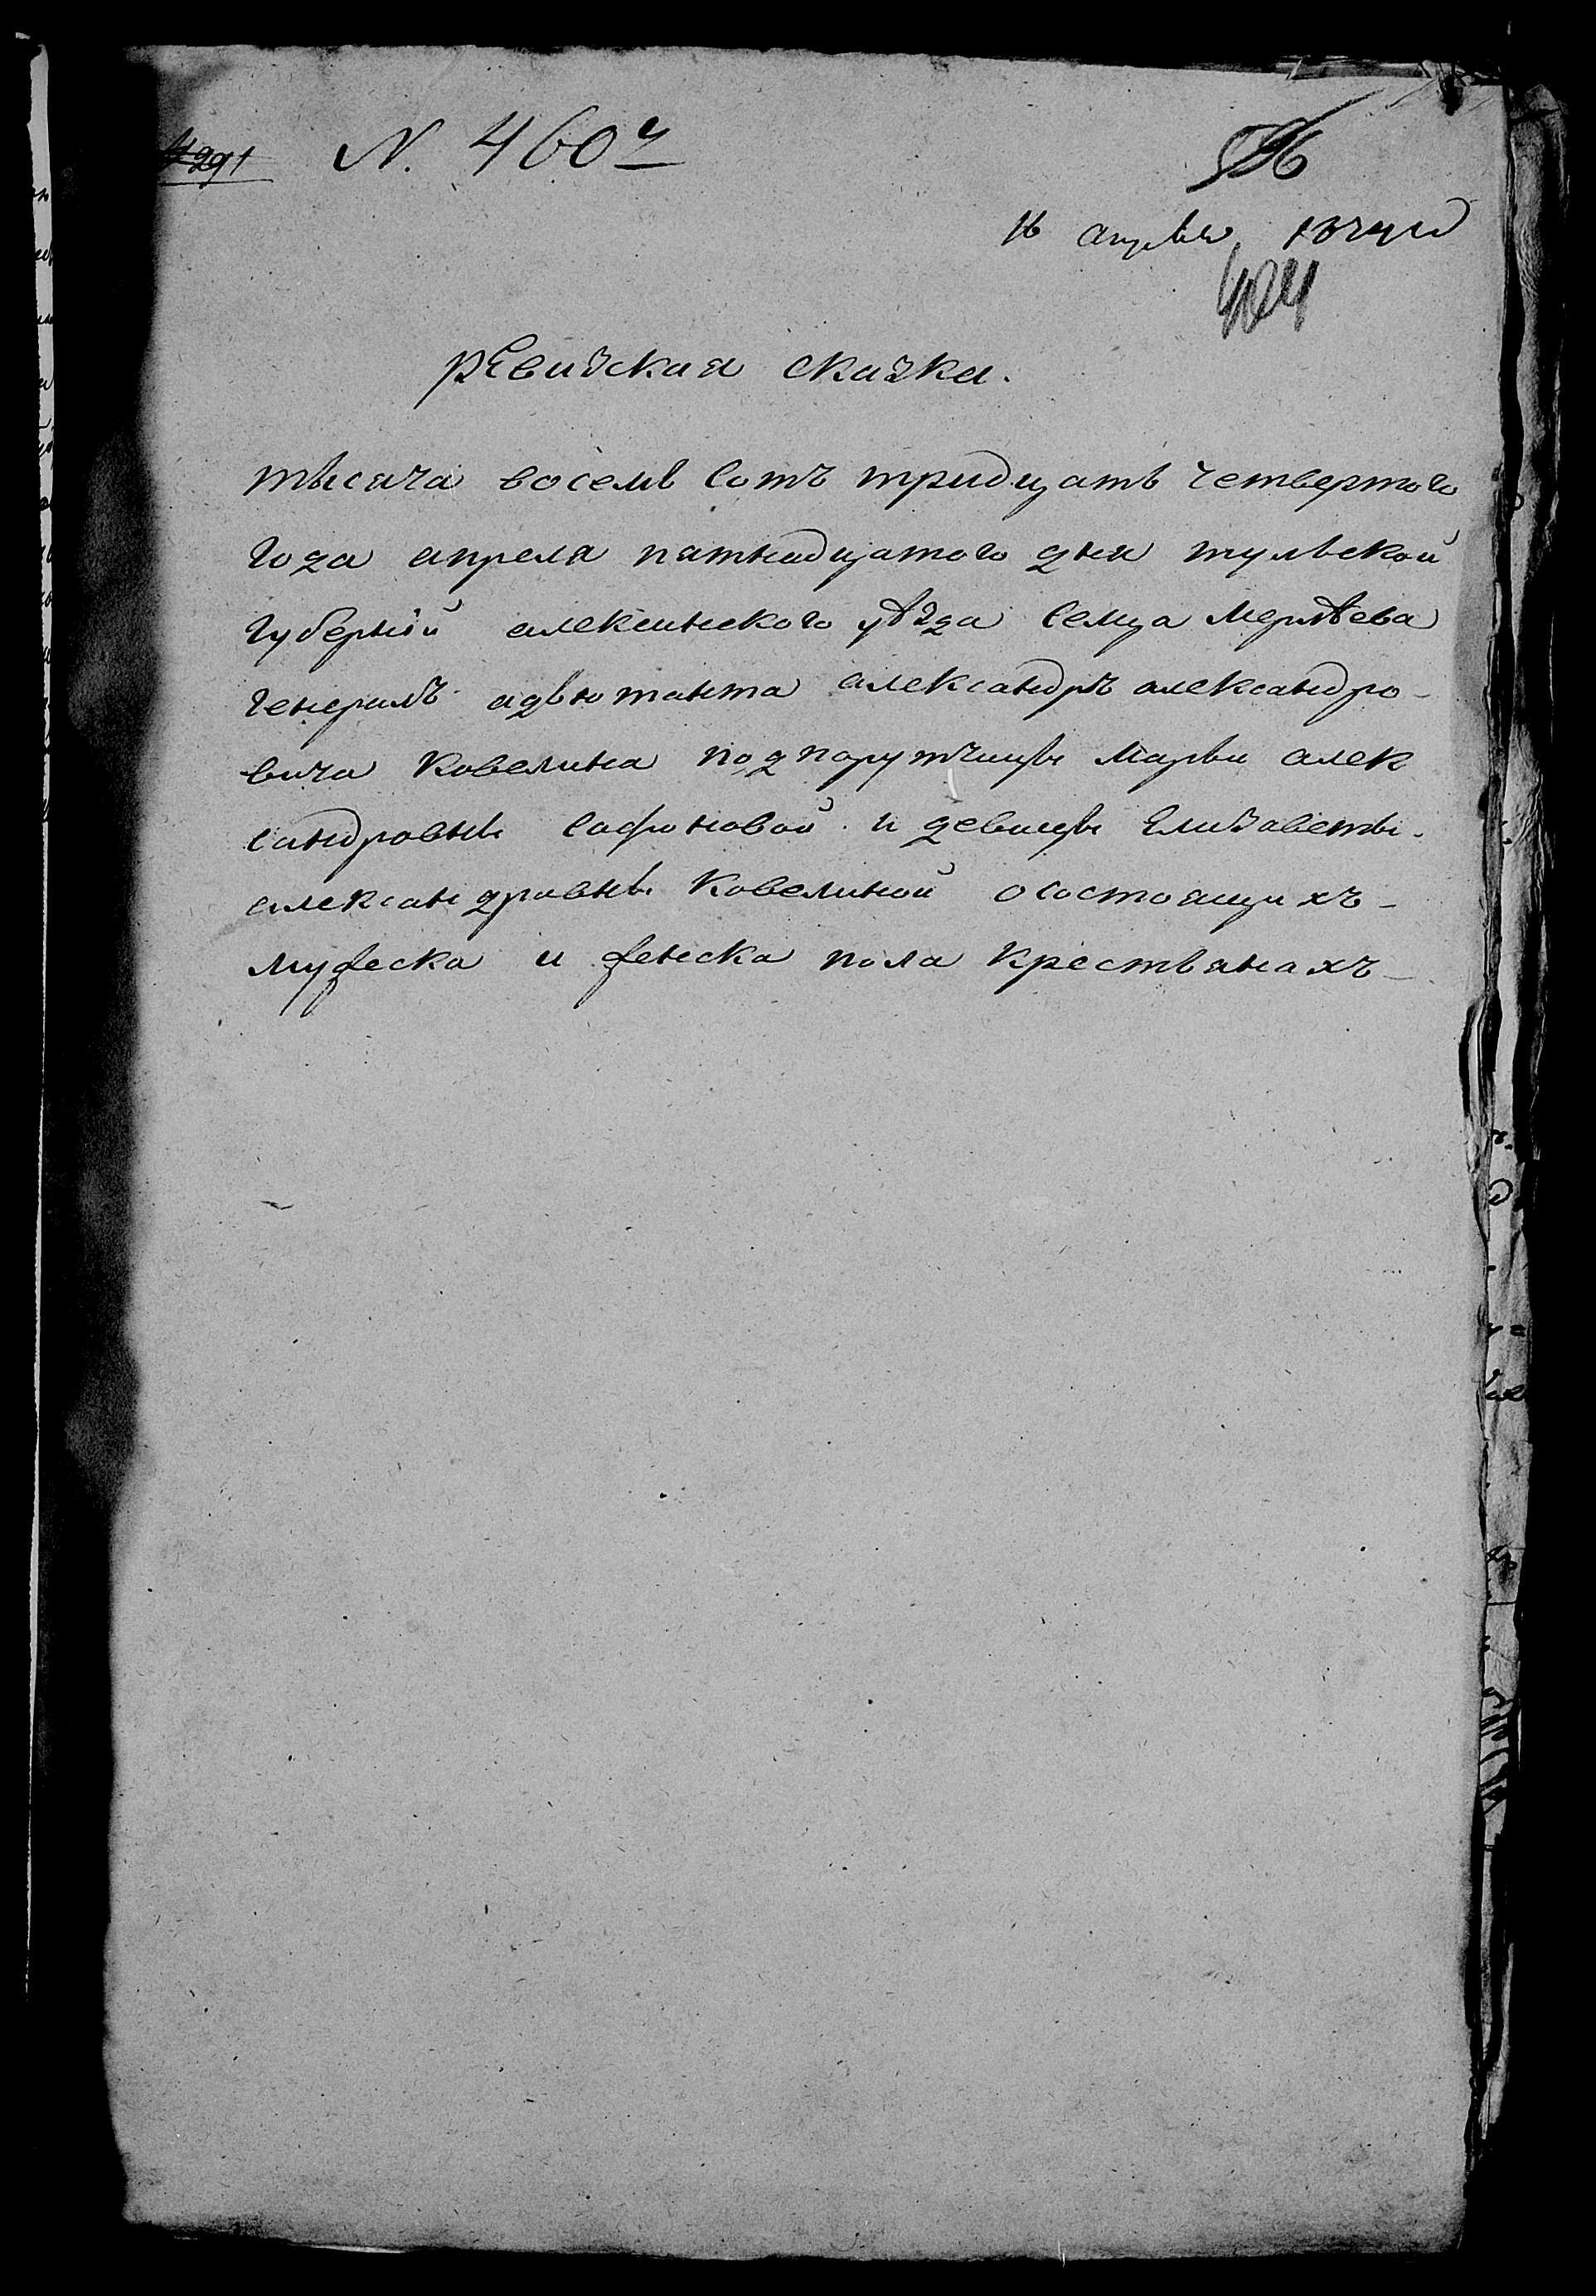 N. 460й
16 апреля 1834 го
424
ревизская сказка.
тысяча восемь сотъ тридцать четвертого
года апреля пятнадцатого дня тульской
губернiй алексинского уѣзда селца мерлѣева
генералъ адьютанта александръ александро-
вича Ковелина подпорутчицы Марьи алек
сандровны Сафоновой и девицы Елизаветы
александравны Ковелиной о состоящихъ-
мужеска и женска пола крестьянахъ-